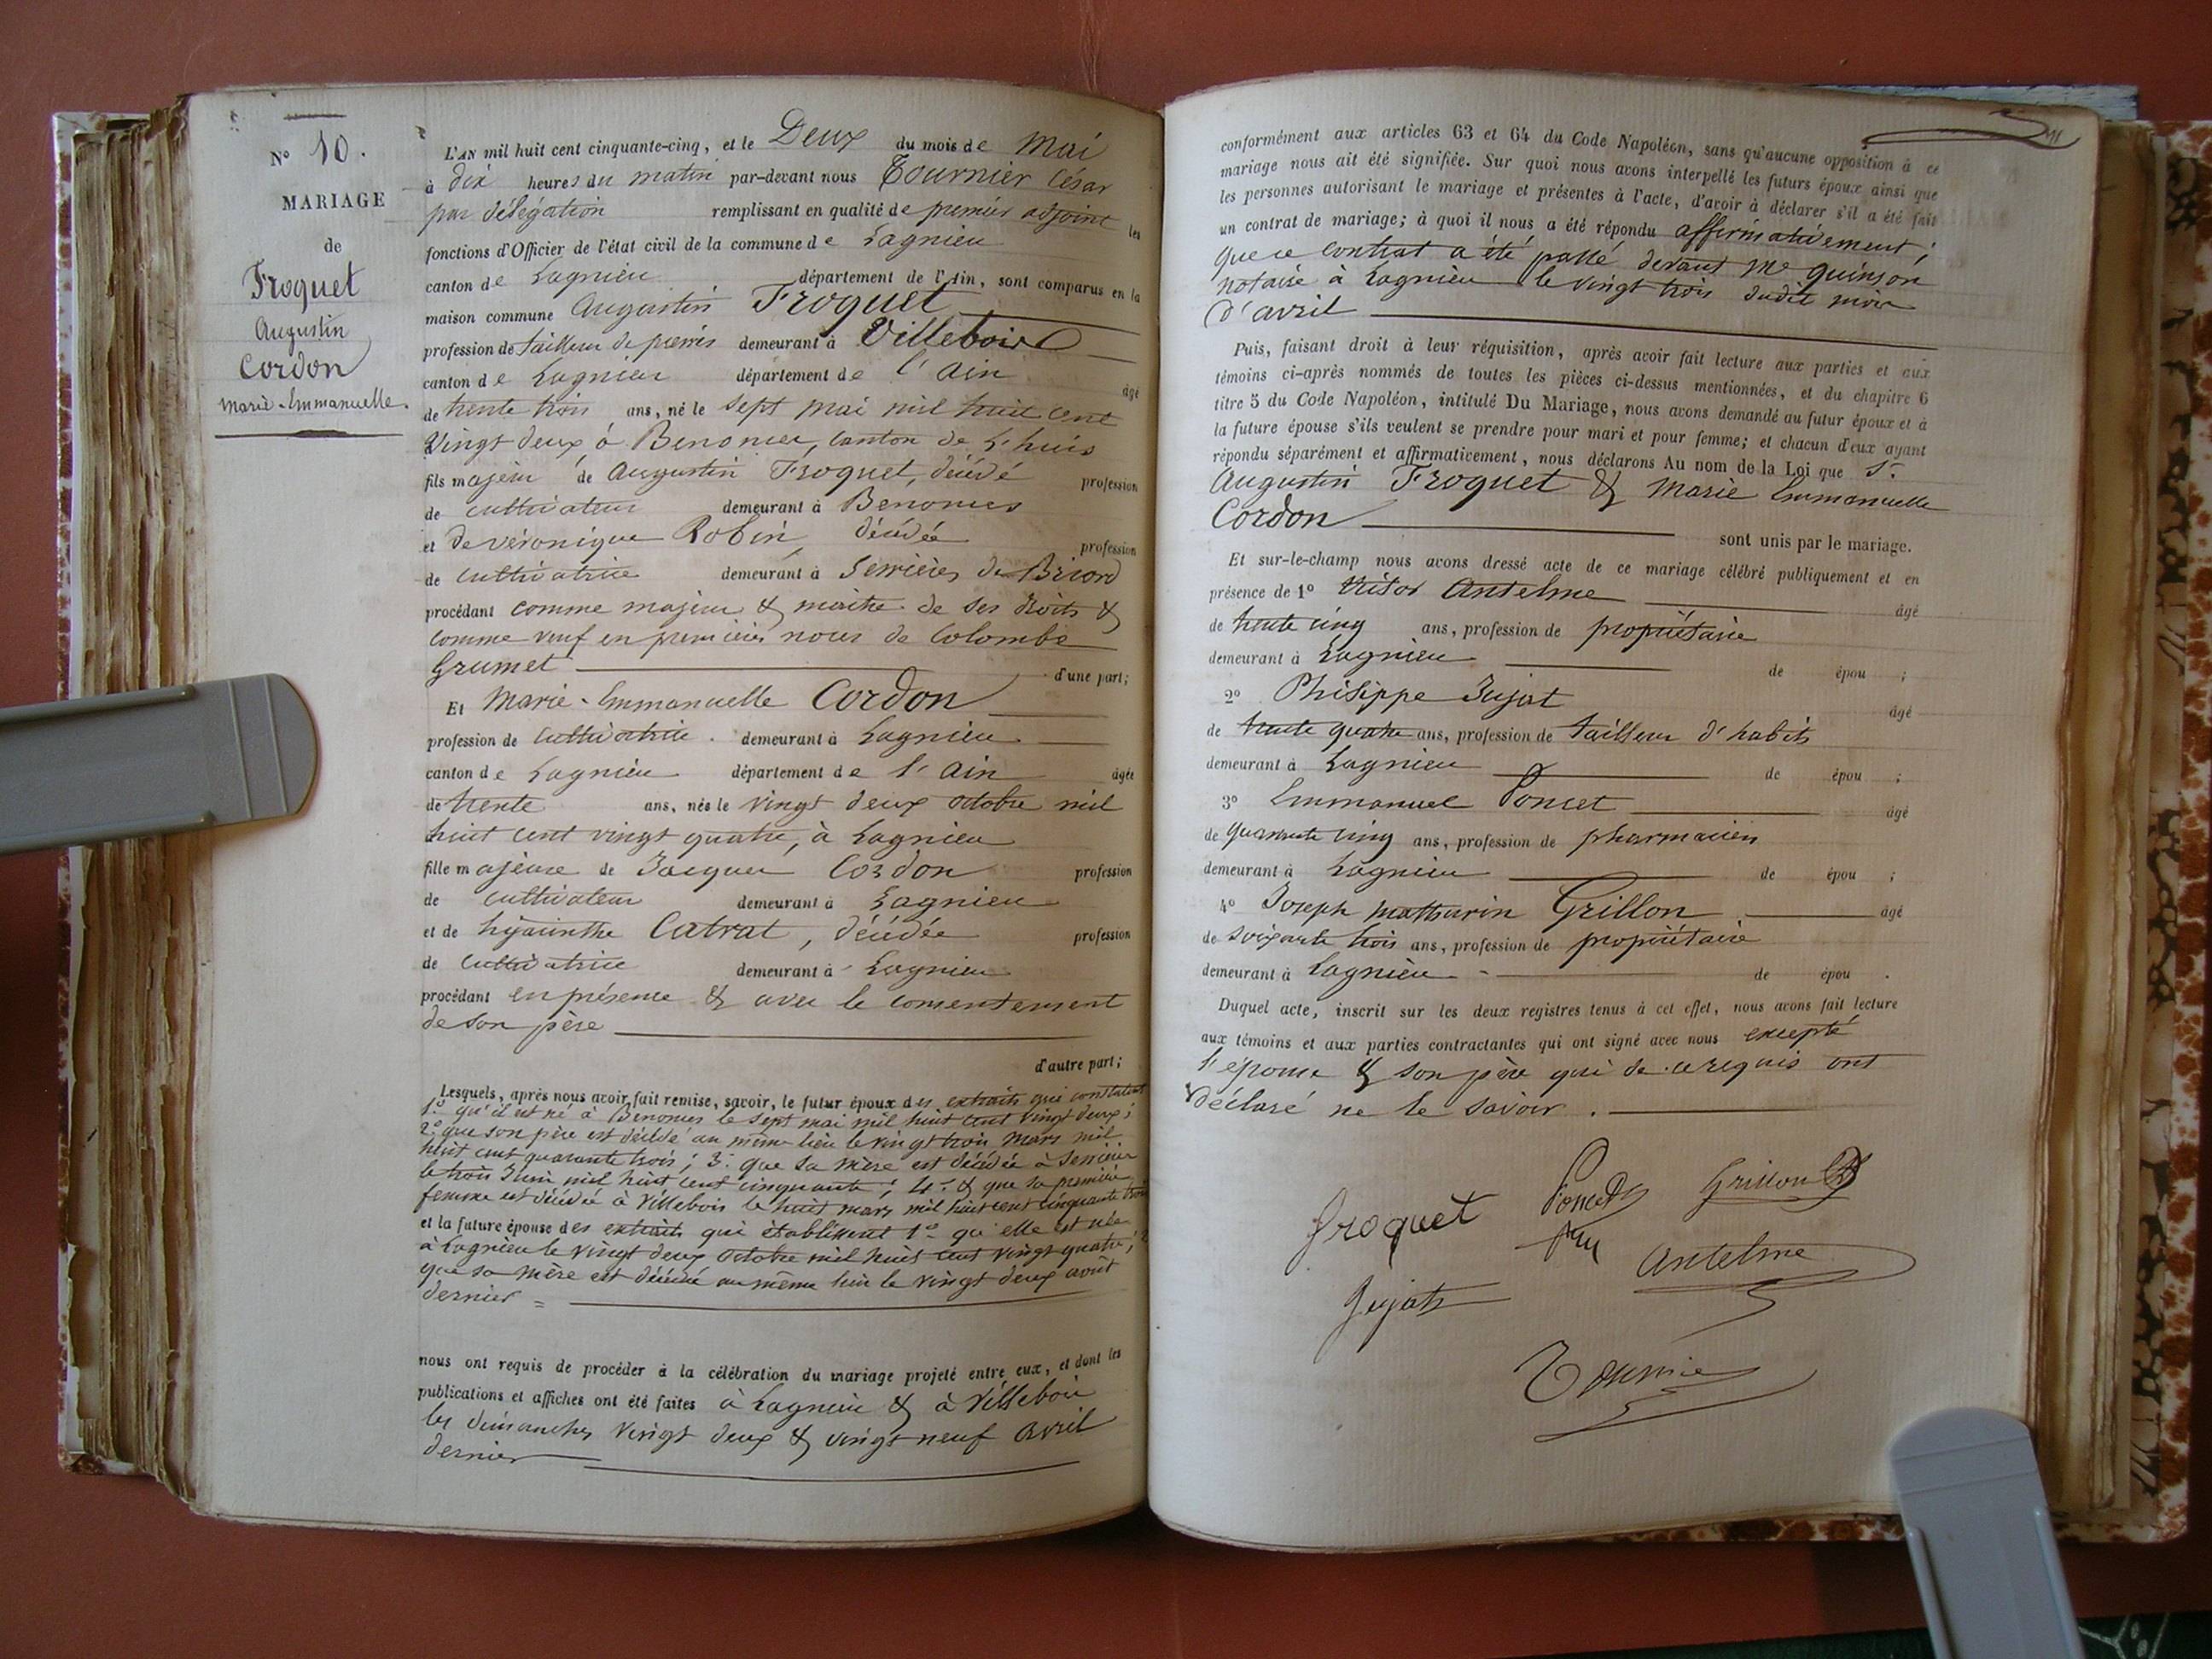 N° 10.
MARIAGE
de
Froquet
Augustin
Cordon
Marie-Emmanuelle.
L'AN mil huit cent cinquante-cinq, et le Deux du mois de Mai
à dix heures du matin par-devant nous Tournier César
par délégation remplissant en qualité de premier adjoint les
fonctions d'Officier de l'état civil de la commune de Lagnieu
canton de Lagnieu département de l'Ain, sont comparus en la
maison commune Augustin Froquet
profession de tailleur de pierres demeurant à Villebois
canton de Lagnieu département de l'Ain âgé
de trente trois ans, né le sept mai mil huit cent
vingt deux à Benonces, canton de L'huis
fils majeur de Augustin Froquet, décédé profession
de cultivateur demeurant à Benonces
et de véronique Robin, décédée profession
de cultivatrice demeurant à Serrières de Briord
procédant comme majeur & maître de ses droits &
comme veuf en premières noces de Colombe
Grumet d'une part;
Et Marie-Emmanuelle Cordon
profession de cultivatrice. demeurant à Lagnieu
canton de Lagnieu département de l'Ain âgée
de trente ans, née le vingt deux octobre mil
huit cent vingt quatre, à Lagnieu
fille majeure de Jacques Cordon profession
de cultivateur demeurant à Lagnieu
et de hyacinthe Catrat, décédée profession
de cultivatrice demeurant à Lagnieu
procédant en présence & avec le consentement
de son père
d'autre part;
Lesquels, après nous avoir fait remise, savoir, le futur époux des extraits qui constatent
1.° qu'il est né à Benonces le sept mai mil huit cent vingt deux;
2.° que son père est décédé au même lieu le vingt trois mars mil
huit cent quarante trois; 3.° que sa mère est décédée à Serrières
le trois Juin mil huit cent cinquante; 4.° & que sa première
femme est décédée à Villebois le huit mars mil huit cent cinquante trois
et la future épouse des extraits qui établissent 1.° qu'elle est née
à Lagnieu le vingt deux octobre mil huit cent vingt quatre; 2
que sa mère est décédée au même lieu le vingt deux août
dernier =
nous ont requis de procéder à la célébration du mariage projeté entre eux, et dont les
publications et affiches ont été faites à Lagnieu & à Villebois
les dimanches vingt deux & vingt neuf avril
dernier
conformément aux articles 63 et 64 du Code Napoléon, sans qu'aucune opposition à ce
mariage nous ait été signifiée. Sur quoi nous avons interpellé les futurs époux ainsi que
les personnes autorisant le mariage et présentes à l'acte, d'avoir à déclarer s'il a été fait
un contrat de mariage; à quoi il nous a été répondu affirmativement;
que ce contrat a été passé devant Me Quinson
notaire à Lagnieu le vingt trois dudit mois
d'avril
Puis, faisant droit à leur réquisition, après avoir fait lecture aux parties et aux
témoins ci-après nommés de toutes les pièces ci-dessus mentionnées, et du chapitre 6
titre 5 du Code Napoléon, intitulé Du Mariage, nous avons demandé au futur époux et à
la future épouse s'ils veulent se prendre pour mari et pour femme; et chacun d'eux ayant
répondu séparément et affirmativement, nous déclarons Au nom de la Loi que Sr.
Augustin Froquet & Marie Emmanuelle
Cordon
sont unis par le mariage.
Et sur-le-champ nous avons dressé acte de ce mariage célébré publiquement et en
présence de 1° Antelme âgé
de trente cinq ans, profession de propriétaire
demeurant à Lagnieu de épou ;
2° Philippe Jujat âgé
de trente quatre ans, profession de tailleur d'habits
demeurant à Lagnieu de épou ;
3° Emmanuel Poncet âgé
de quarante cinq ans, profession de pharmacien
demeurant à Lagnieu de épou ;
4° Joseph Mathurin Grillon âgé
de soixante trois ans, profession de propriétaire
demeurant à Lagnieu de épou .
Duquel acte, inscrit sur les deux registres tenus à cet effet, nous avons fait lecture
aux témoins et aux parties contractantes qui ont signé avec nous excepté
l'épouse & son père qui de ce requis ont
déclaré ne le savoir.
Froquet Poncet Grillon
Antelme
Jujat
Tournier